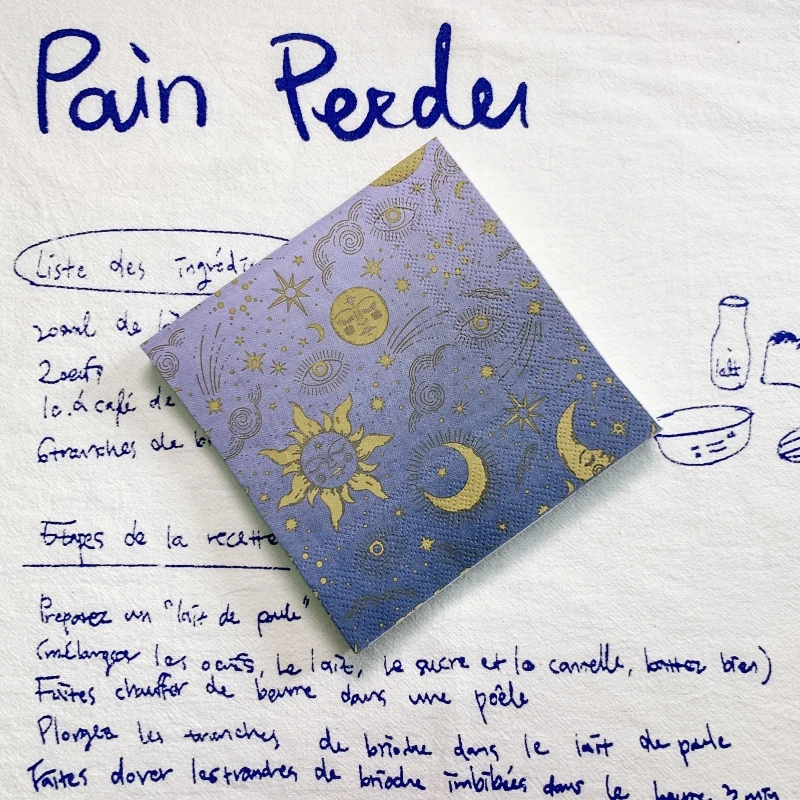 Pain Perdu
Liste des ingrédi
20ml de
2 oeufs
1c. à café de
6 tranches de b
lait
Etapes de la recette
Préparez un "lait de poule"
(mélangez les oeufs, le lait, le sucre et la cannelle, battez bien)
Faites chauffer de beurre dans une poêle
Plongez les tranches de brioche dans le lait de poule
Faites dorer les tranches de brioche imbibées dans le beurre 3 min